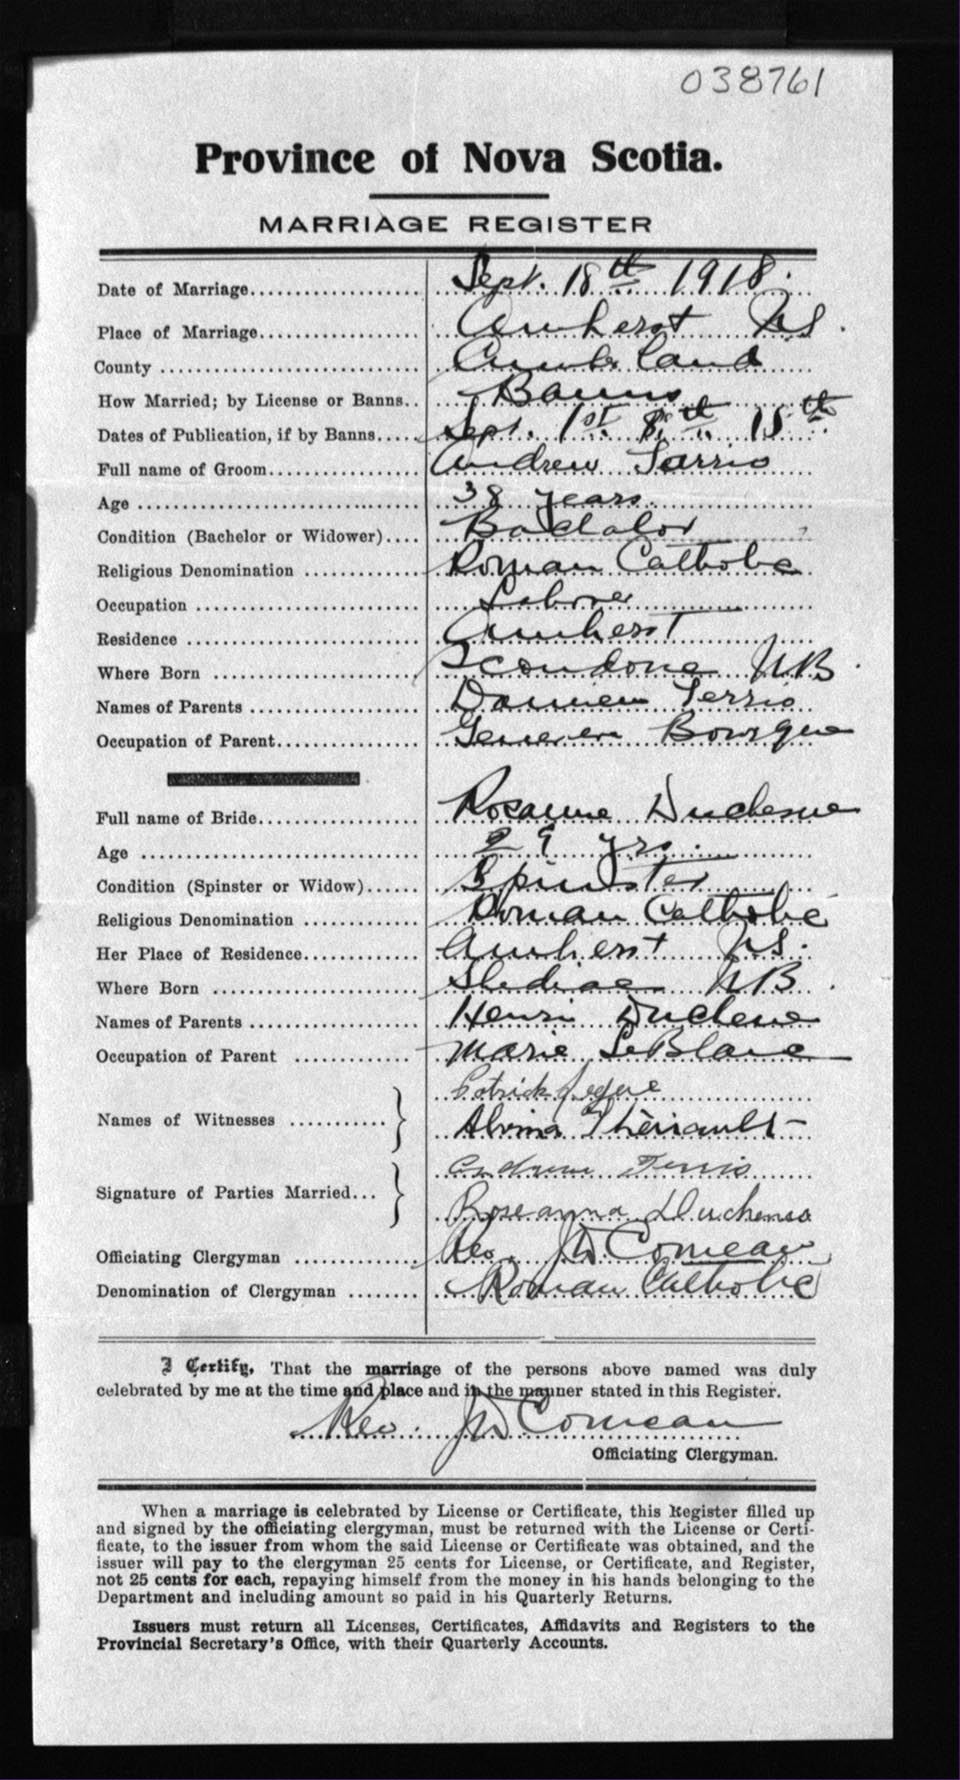 038761
Province of Nova Scotia.
MARRIAGE REGISTER
Date of Marriage Sept. 18th 1918.
Place of Marriage Amherst NS.
County Cumberland
How Married; by License or Banns Banns
Dates of Publication, if by Banns Sept. 1st. 8th. 15th
Full name of Groom Andrew
Age 38 years.
Condition (Bachelor or Widower) Bachalor
Religious Denomination Roman Catholic
Occupation Laborer
Residence Amherst
Where Born Scoudouc NB.
Names of Parents Damien Terrio
Occupation of Parent Bourque
Full name of Bride Rosanne Duchesne
Age 29 yrs.
Condition (Spinster or Widow) Spinster
Religious Denomination Roman Catholic
Her Place of Residence Amherst NS.
Where Born Shediac NB.
Names of Parents Henri Duchene
Occupation of Parent Marie LeBlanc
Patrick
Names of Witnesses Alvina Thériault
Signature of Parties Married
Roseanna
Officiating Clergyman Rev. JD Comeau
Denomination of Clergyman Roman Catholic
I Certify, That the marriage of the persons above named was duly
celebrated by me at the time and place and in the manner stated in this Register.
Rev. JD Comeau
Officiating Clergyman.
When a marriage is celebrated by License or Certificate, this Register filled up
and signed by the officiating clergyman, must be returned with the License or Certi-
ficate, to the issuer from whom the said License or Certificate was obtained, and the
issuer will pay to the clergyman 25 cents for License, or Certificate, and Register,
not 25 cents for each, repaying himself from the money in his hands belonging to the
Department and including amount so paid in his Quarterly Returns.
Issuers must return all Licenses, Certificates, Affidavits and Registers to the
Provincial Secretary's Office, with their Quarterly Accounts.